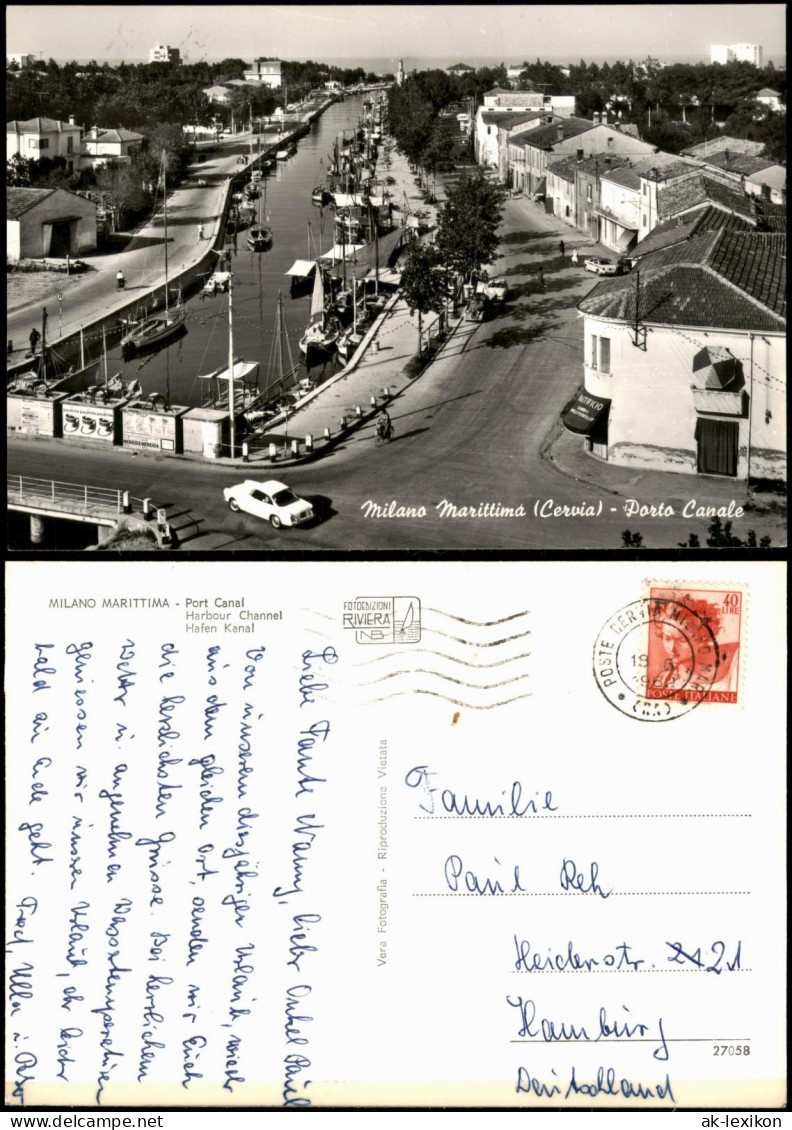 PANIFICIO
Milano Marittima (Cervia) - Porto Canale
MILANO MARITTIMA - Port Canal
Harbour Channel
Hafen Kanal
FOTOEDIZIONI
RIVIERA
40
LIRE
POSTE ITALIANE
POSTE CERVIA MILANO MAR.
(RA)
Liebe Tante Nanny, lieber Onkel Paul
Von unserem diesjährigen Urlaub, wieder
aus dem gleichen Ort, senden wir Euch
die herzlichsten Grüsse. Bei herrlichem
Wetter u. angenehmen Wassertemperaturen
geniessen wir unseren Urlaub, der leider
bald zu Ende geht. Fred, Ulla u. Peter
Vera Fotografia - Riproduzione Vietata
Familie
Paul Reh
Heidenstr. 21
Hamburg
27058
Deutschland
ak-lexikon